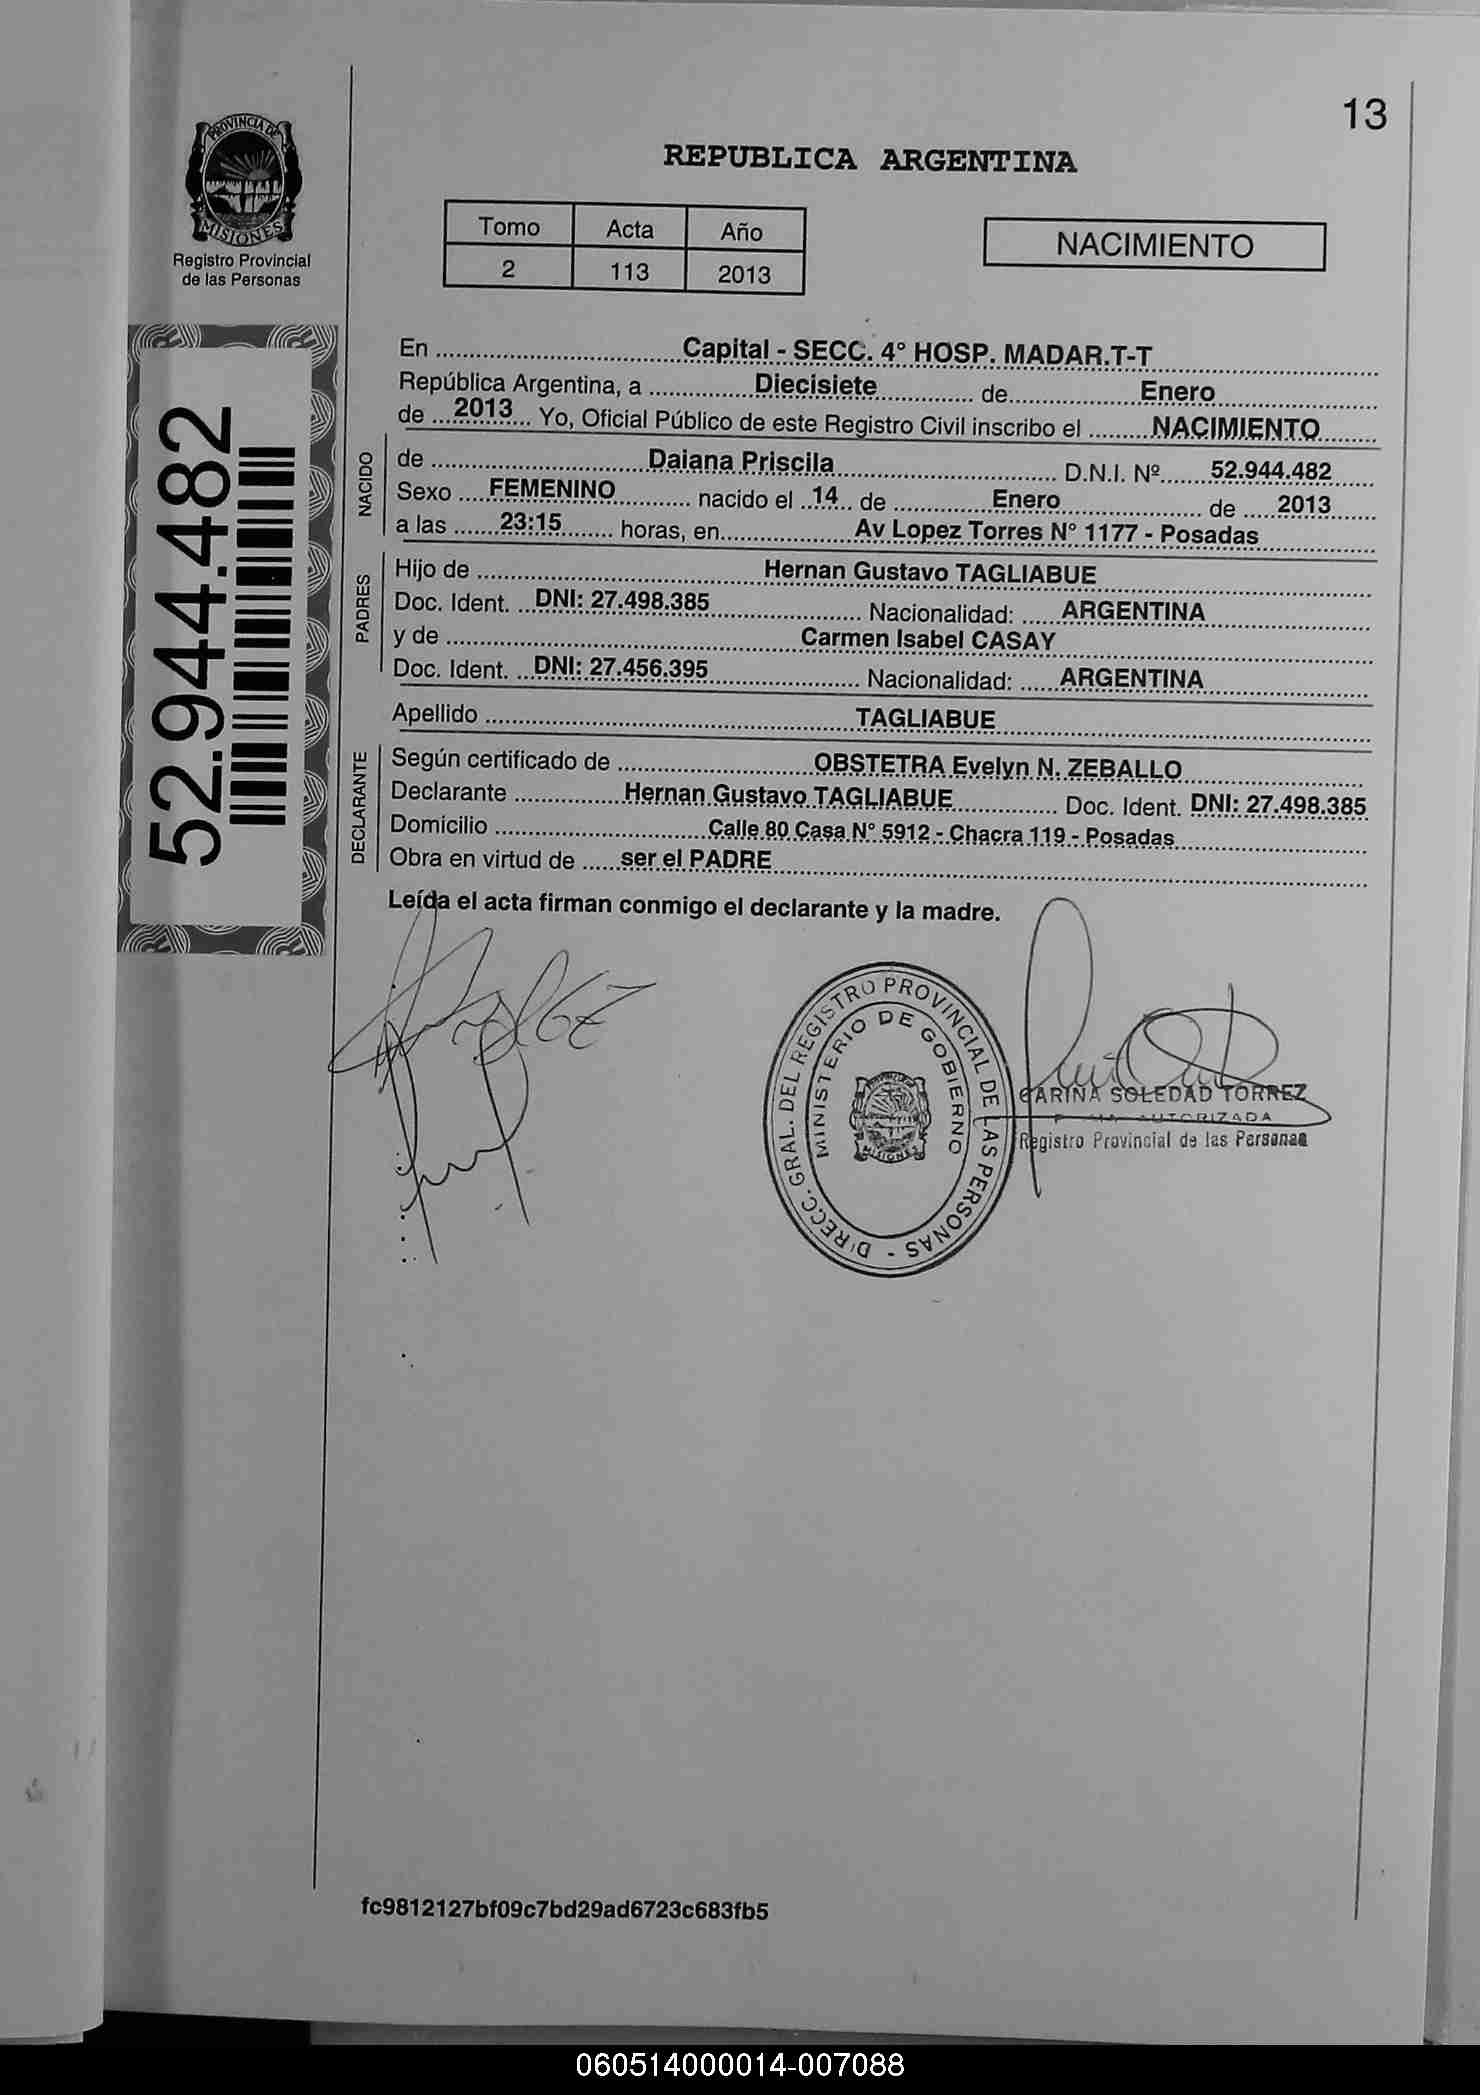 13
PROVINCIA DE
MISIONES
Registro Provincial
de las Personas
REPUBLICA ARGENTINA
Tomo Acta Año
2 113 2013
NACIMIENTO
52.944.482
En ........ Capital - SECC. 4° HOSP. MADAR.T-T
República Argentina, a ........ Diecisiete ........ de ........ Enero ........
de ... 2013 ... Yo, Oficial Público de este Registro Civil inscribo el ........ NACIMIENTO ........
NACIDO
de ........ Daiana Priscila ........ D.N.I. Nº ........ 52.944.482 ........
Sexo .... FEMENINO ........ nacido el .. 14 .. de ........ Enero ........ de .... 2013 ........
a las ...... 23:15 ........ horas, en ........ Av Lopez Torres N° 1177 - Posadas ........
PADRES
Hijo de ........ Hernan Gustavo TAGLIABUE ........
Doc. Ident. .. DNI: 27.498.385 ........ Nacionalidad: ...... ARGENTINA ........
y de ........ Carmen Isabel CASAY ........
Doc. Ident. .. DNI: 27.456.395 ........ Nacionalidad: ...... ARGENTINA ........
Apellido ........ TAGLIABUE ........
DECLARANTE
Según certificado de ........ OBSTETRA Evelyn N. ZEBALLO ........
Declarante ........ Hernan Gustavo TAGLIABUE ........ Doc. Ident. DNI: 27.498.385
Domicilio ........ Calle 80 Casa N° 5912 - Chacra 119 - Posadas ........
Obra en virtud de ..... ser el PADRE ........
Leída el acta firman conmigo el declarante y la madre.
DIRECC. GRAL. DEL REGISTRO PROVINCIAL DE LAS PERSONAS -
MINISTERIO DE GOBIERNO
MISIONES
CARINA SOLEDAD TORREZ
AUTORIZADA
Registro Provincial de las Personas
fc9812127bf09c7bd29ad6723c683fb5
060514000014-007088